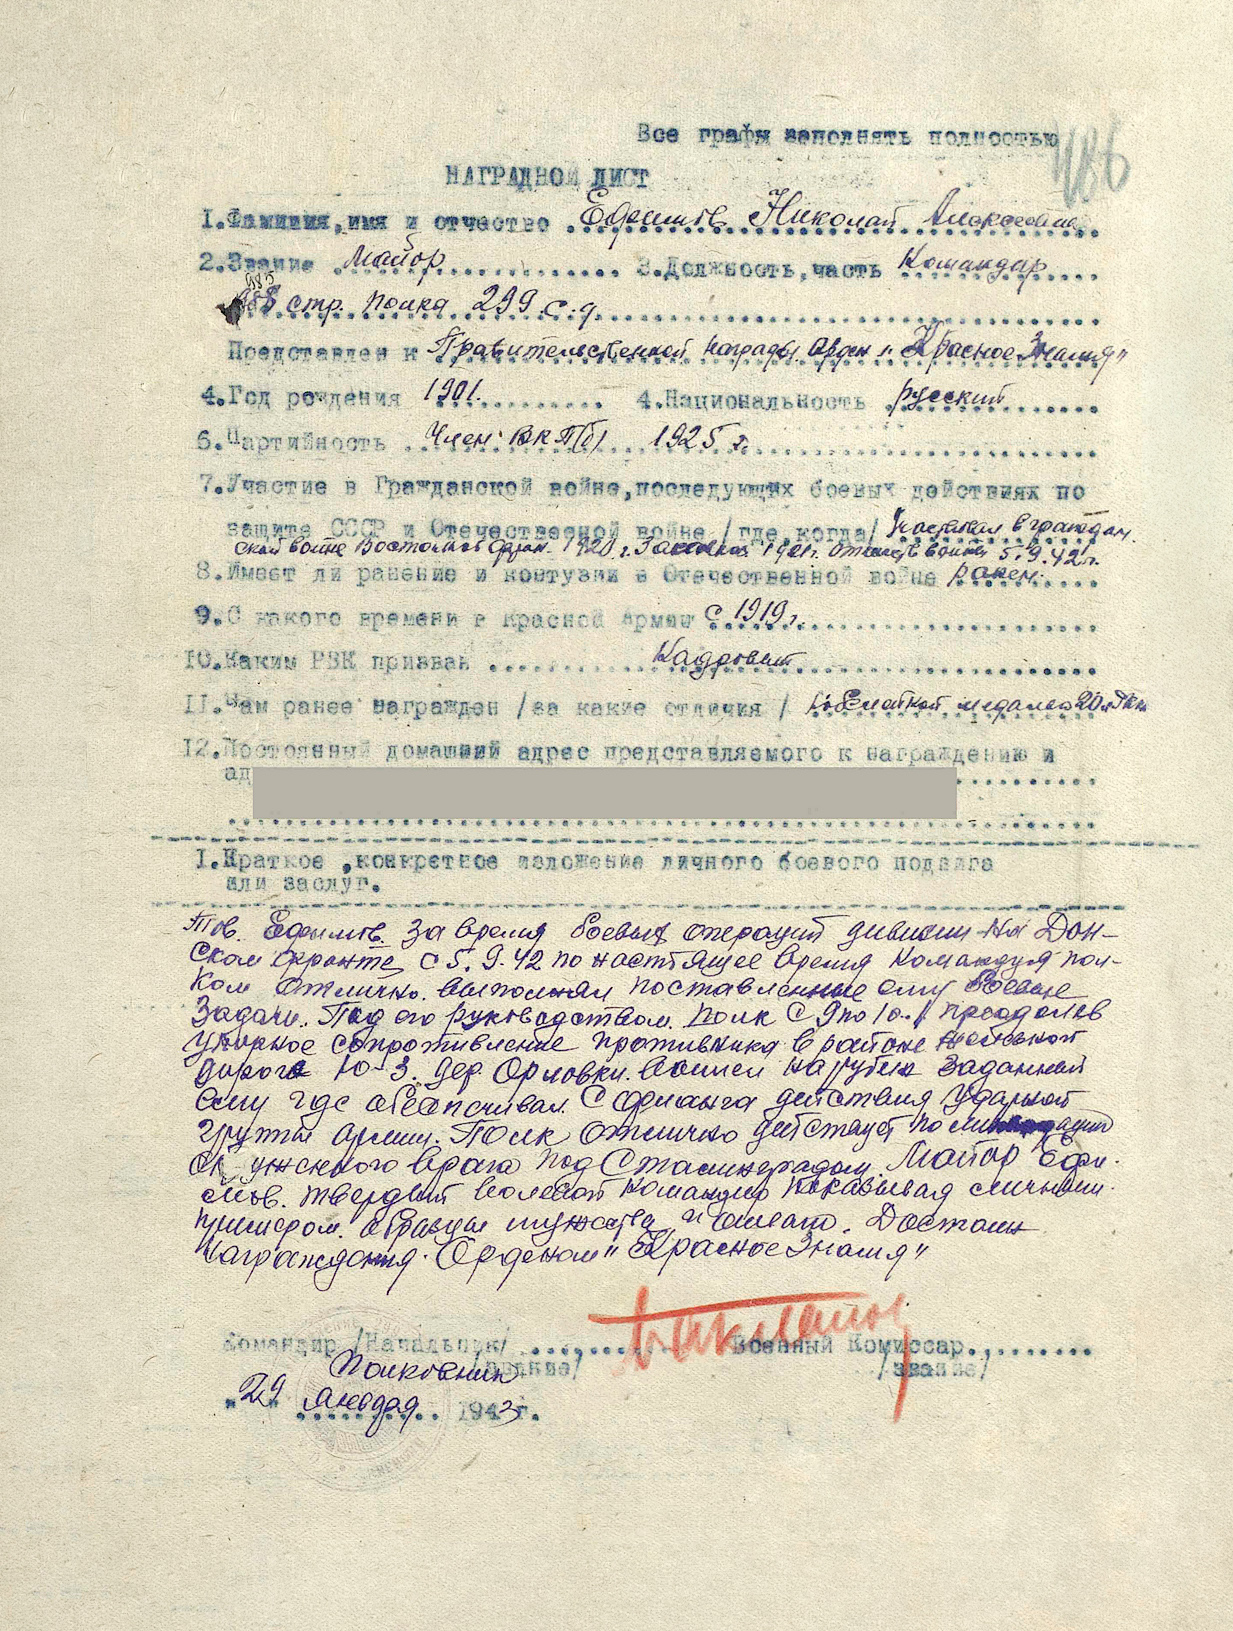 Все графы заполнять полностью
486
НАГРАДНОЙ ЛИСТ
1.Фамилия,имя и отчество Ефимов Николай Алексеевич
2.Звание Майор 3.Должность,часть Командир
985 стр. полка 299 с.д.
Представлен к Правительственной награды Орден "Красное Знамя"
4.Год рождения 1901. 4.Национальность русский
6.Партийность Член ВКП(б) 1925 г.
7.Участие в Гражданской войне,последующих боевых действиях по
защите СССР и Отечественной войне /где,когда/ Участвовал в граждан.
ской войне Восточном фрон. 1920 г. 1921г. Отечеств войне 5.9.42г.
8.Имеет ли ранение и контузии в Отечественной войне ранен.
9.С какого времени в Красной армии с 1919 г.
10.Каким РВК призван Кадровый
11.Чем ранее награжден /за какие отличия / Юбелейной медалью 20 л
12.Постоянный домашний адрес представляемого к награждению и
ад
1.Краткое ,конкретное изложение личного боевого подвига
или заслуг.
Тов. Ефимов. За время боевых операций дивизии на Дон-
ском фронте с 5.9.42 по настоящее время командуя пол-
ком отлично. выполнял поставленные ему боевые
задачи. Под его руководством. полк с 9 по 10.1 преодолев
упорное сопротивление противника в районе железной
дороги Ю-З. дер. Орловки. вышел на рубеж заданный.
ему где обеспечивал. с фланга действия ударной
группы армии. Полк отлично действует по
окруженного врага под Сталинградом. Майор Ефи-
мов. твердый волевой командир показывая личным.
примером. образцы мужества и отваги. Достоин
награждения. Орденом "Красное Знамя"
Командир /Начальник/ Военный Комиссар
Полковник /звание/ /звание/
"29" Января 1943г.